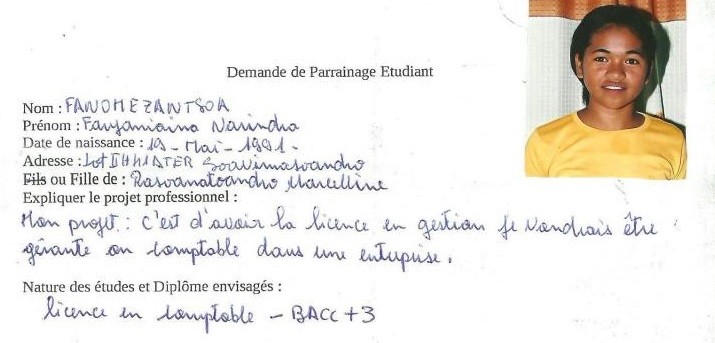 Demande de Parrainage Etudiant
Nom : FANOMEZANTSOA
Prénom : Fanjaniaina Narindra
Date de naissance : 19 - Mai - 1991.
Adresse : Lot II H
Fils ou Fille de : Marcelline
Expliquer le projet professionnel :
Mon projet : c'est d'avoir la licence en gestion je voudrais être
gérante ou comptable dans une entreprise.
Nature des études et Diplôme envisagés :
licence en comptable - BACC +3